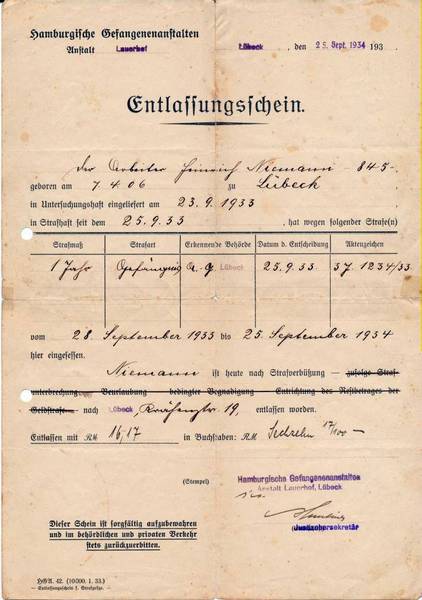 Hamburgische Gefangenenanstalten
Anstalt Lauerhof Lübeck, den 25. Sept. 1934 193
Entlassungsschein.
Der Arbeiter Heinrich Niemann - 845 -
geboren am 7.4.06 zu Lübeck
in Untersuchungshaft eingeliefert am 23.9.1933
in Strafhaft seit dem 25.9.33, hat wegen folgender Strafe(n)
Strafmaß Strafart Erkennende Behörde Datum d. Entscheidung Aktenzeichen
1 Jahr Gefängnis A.G. Lübeck 25.9.33 37. 1234/33
vom 28. September 1933 bis 25. September 1934
hier eingesessen.
Niemann ist heute nach Strafverbüßung — zufolge Straf-
unterbrechung — Beurlaubung — bedingter Begnadigung — Entrichtung des Restbetrages der
Geldstrafe — nach Lübeck, 19, entlassen worden.
Entlassen mit RM 16,17 in Buchstaben: RM Sechzehn 17/100 -
(Stempel)
Hamburgische Gefangenenanstalten
Anstalt Lauerhof, Lübeck
Justizobersekretär
Dieser Schein ist sorgfältig aufzubewahren
und im behördlichen und privaten Verkehr
stets zurückzuerbitten.
HGA. 42. (10000. 1. 33.)
— Entlassungsschein f. Strafgefge. —